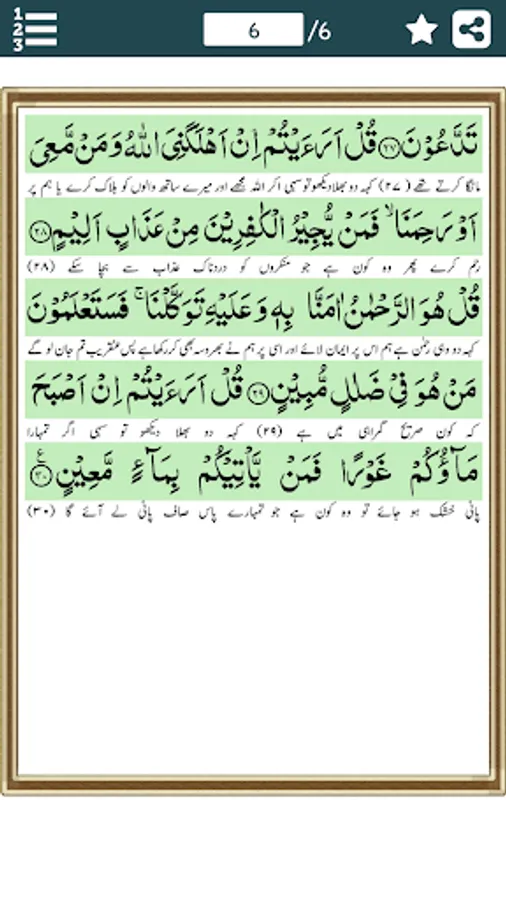 1
2
3
6 /6
تَدَّعُوۡنَ ﴿۲۷﴾ قُلۡ اَرَءَيۡتُمۡ اِنۡ اَهۡلَكَنِىَ اللّٰهُ وَمَنۡ مَّعِىَ
مانگا کرتے تھے (۲۷) کہہ دو بھلا دیکھو تو سہی اگر اللہ مجھے اور میرے ساتھ والوں کو ہلاک کرے یا ہم پر
اَوۡ رَحِمَنَا ۙ فَمَنۡ يُّجِيۡرُ الۡكٰفِرِيۡنَ مِنۡ عَذَابٍ اَلِيۡمٍ ﴿۲۸﴾
رحم کرے پھر وہ کون ہے جو منکروں کو دردناک عذاب سے بچا سکے (۲۸)
قُلۡ هُوَ الرَّحۡمٰنُ اٰمَنَّا بِهٖ وَعَلَيۡهِ تَوَكَّلۡنَا ۚ فَسَتَعۡلَمُوۡنَ
کہہ دو وہی رحمٰن ہے ہم اس پر ایمان لائے اور اسی پر ہم نے بھروسہ بھی کر رکھا ہے پس عنقریب تم جان لو گے
مَنۡ هُوَ فِىۡ ضَلٰلٍ مُّبِيۡنٍ ﴿۲۹﴾ قُلۡ اَرَءَيۡتُمۡ اِنۡ اَصۡبَحَ
کہ کون صریح گمراہی میں ہے (۲۹) کہہ دو بھلا دیکھو تو سہی اگر تمہارا
مَآؤُكُمۡ غَوۡرًا فَمَنۡ يَّاۡتِيۡكُمۡ بِمَآءٍ مَّعِيۡنٍ ﴿۳۰﴾ ع
پانی خشک ہو جائے تو وہ کون ہے جو تمہارے پاس صاف پانی لے آئے گا (۳۰)